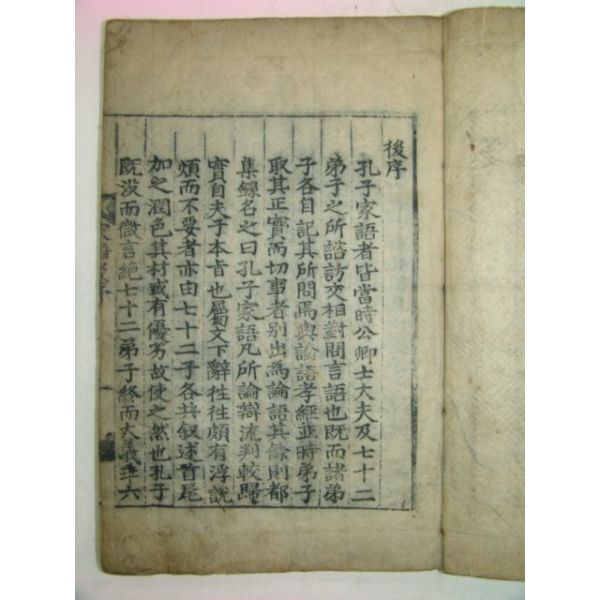 後序
孔子家語者皆當時公卿士大夫及七十二
弟子之所諮訪交相對問言語也既而諸弟
子各自記其所問焉與論語孝經並時弟子
取其正實而切事者别出爲論語其餘則都
集錄名之曰孔子家語凡所論辯流判較歸
實自夫子本旨也屬文下辭徃徃頗有浮說
煩而不要者亦由七十二子各共叙述首尾
加之潤色其材或有優劣故使之然也孔子
既没而微言絶七十二弟子終而大義乖六